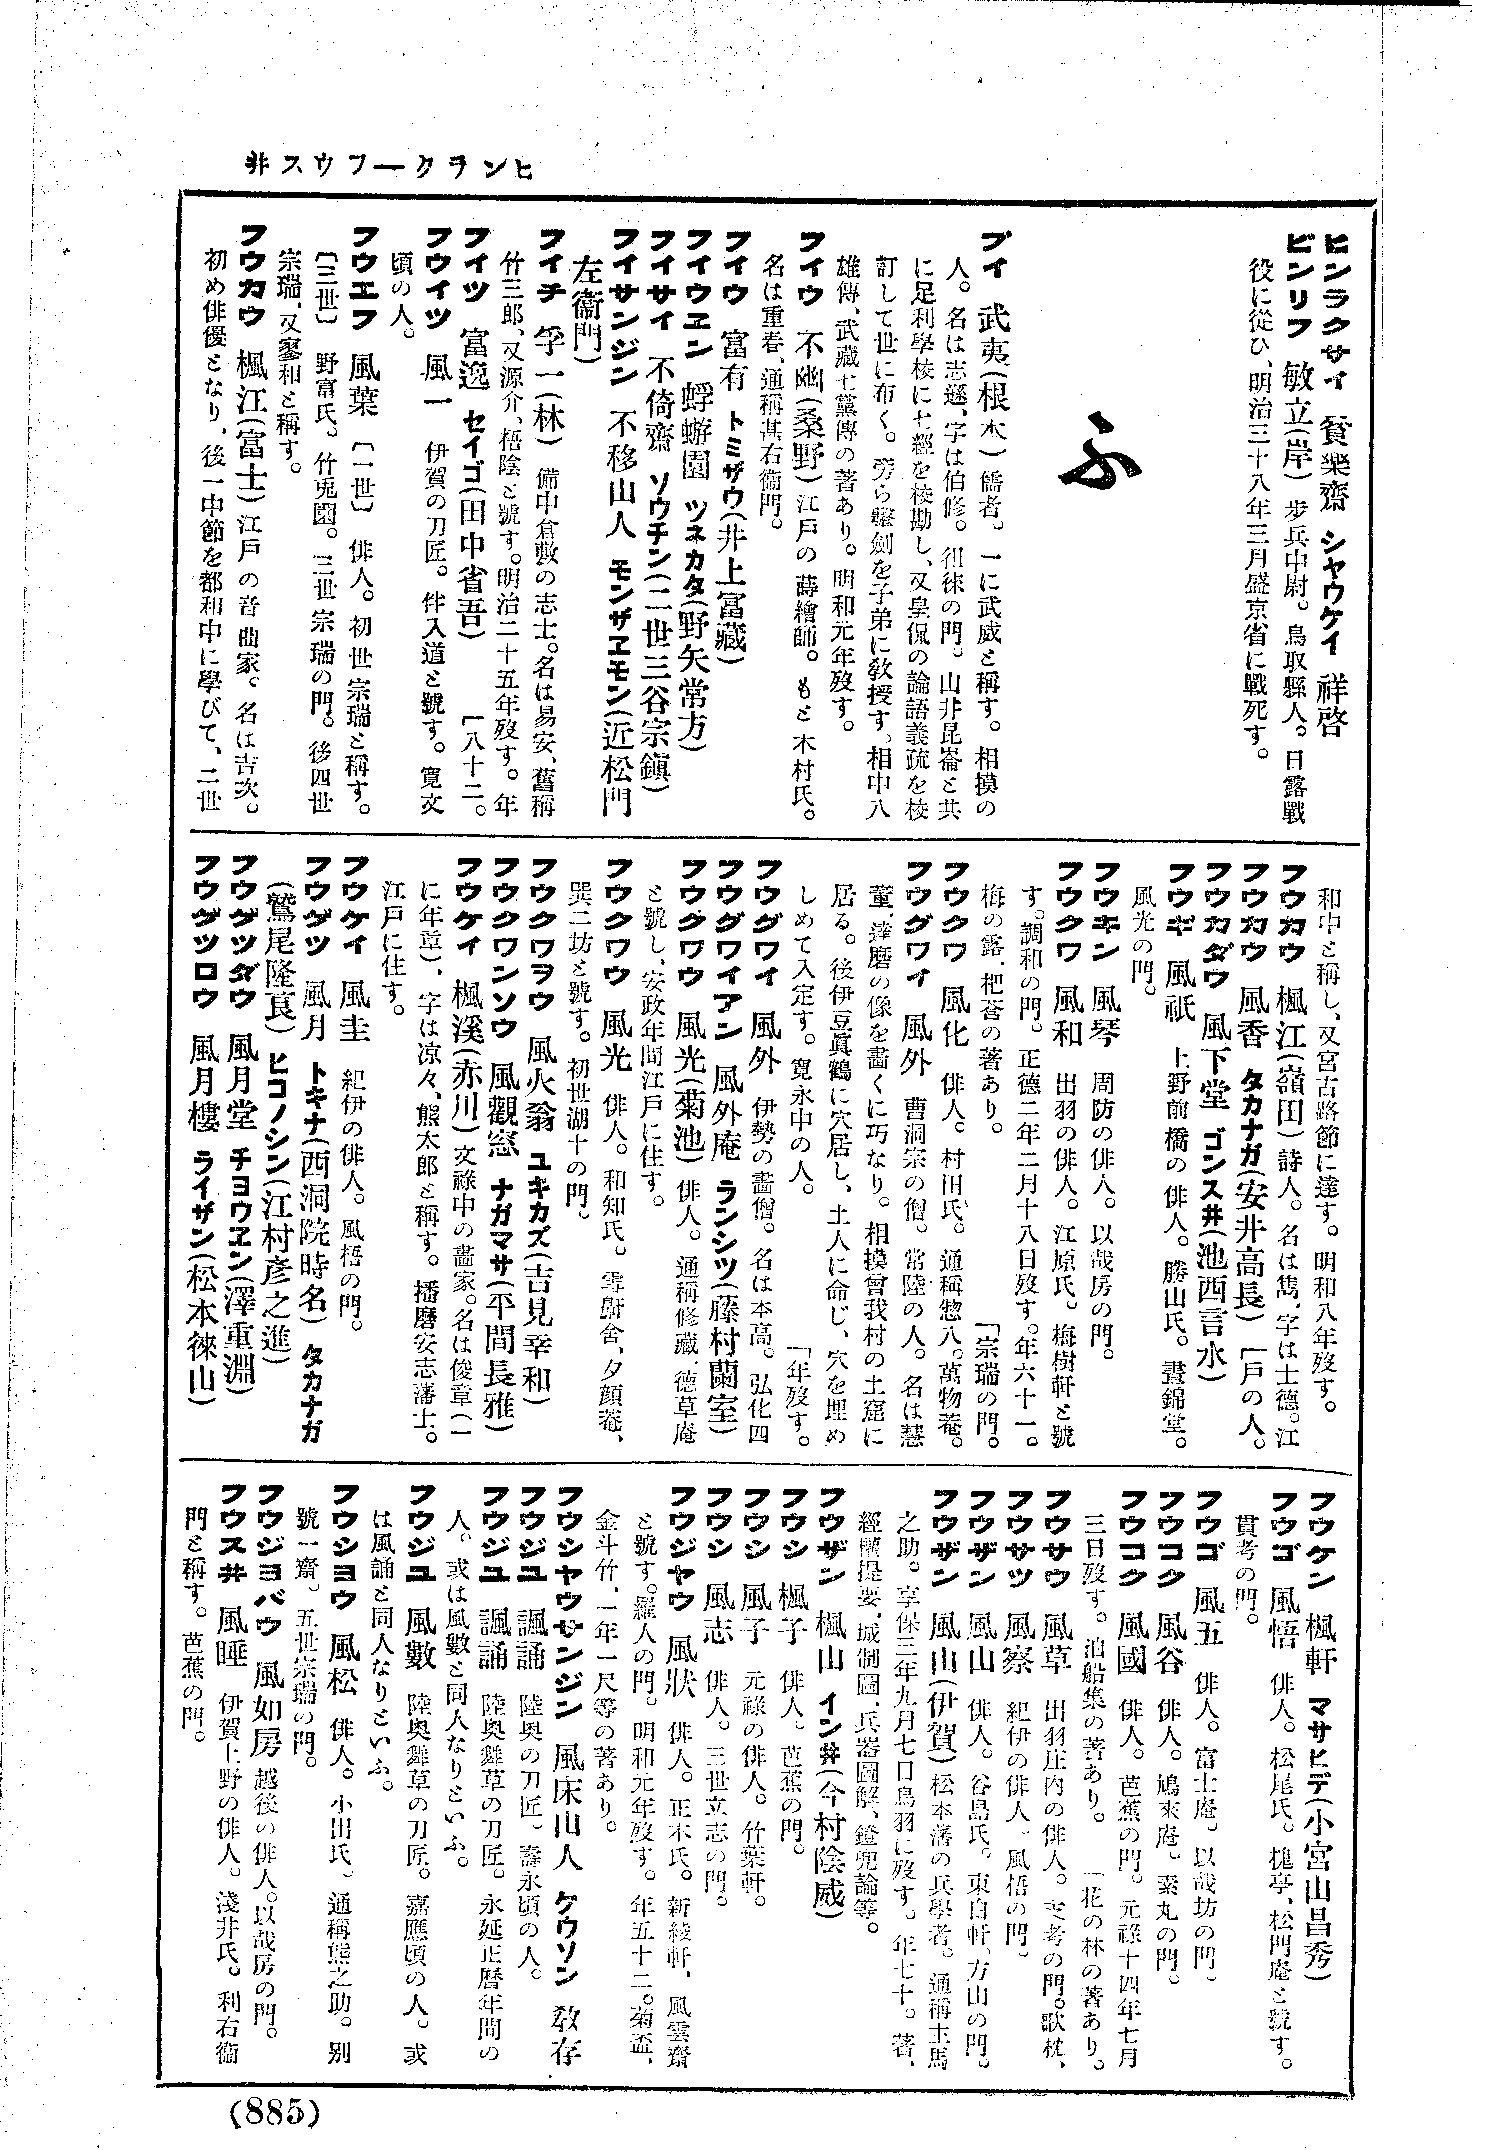 ヒンラクーフウスヰ
ヒンラクサイ 貧樂齋 シヤウケイ 祥啓
ビンリフ 敏立(岸) 步兵中尉。鳥取縣人。日露戰
役に從ひ、明治三十八年三月盛京省に戰死す。
ふ
ブイ 武夷(根本) 儒者。一に武威と稱す。相摸の
人。名は志遜、字は伯修。徂徠の門。山井昆崙と共
に足利學校に七經を校勘し、又皇侃の論語義疏を校
訂して世に布く。旁ら擊劍を子弟に敎授す。相中八
雄傳、武藏七黨傳の著あり。明和元年歿す。
フイウ 不幽(桑野) 江戶の蒔繪師。もと木村氏。
名は重春、通稱甚右衞門。
フイウ 富有 トミザウ(井上富藏)
フイウヱン 蜉蝣園 ツネカタ(野矢常方)
フイサイ 不倚齋 ソウチン(二世三谷宗鎭)
フイサンジン 不移山人 モンザヱモン(近松門
左衞門)
フイチ 孚一(林) 備中倉敷の志士。名は易安、舊稱
竹三郎、又源介、梧陰と號す。明治二十五年歿す。年
フイツ 富逸 セイゴ(田中省吾) 〔八十二。
フウイツ 風一 伊賀の刀匠。伴入道と號す。寬文
頃の人。
フウエフ 風葉 〔一世〕 俳人。初世宗瑞と稱す。
〔三世〕 野富氏。竹兎園。三世宗瑞の門。後四世
宗瑞、又寥和と稱す。
フウカウ 楓江(富士) 江戶の音曲家。名は吉次。
初め俳優となり、後一中節を都和中に學びて、二世
和中と稱し、又宮古路節に達す。明和八年歿す。
フウカウ 楓江(嶺田) 詩人。名は雋、字は士德。江
フウカウ 風香 タカナガ(安井高長) 〔戶の人。
フウカダウ 風下堂 ゴンスヰ(池西言水)
フウギ 風祇 上野前橋の俳人。勝山氏。晝錦堂。
風光の門。
フウキン 風琴 周防の俳人。以哉房の門。
フウクワ 風和 出羽の俳人。江原氏。梅樹軒と號
す。調和の門。正德二年二月十八日歿す。年六十一。
梅の露、杷菴の著あり。 「宗瑞の門。
フウクワ 風化 俳人。村田氏。通稱惣八。萬物菴。
フウグワイ 風外 曹洞宗の僧。常陸の人。名は慧
薰、達磨の像を畵くに巧なり。相摸曾我村の土窟に
居る。後伊豆眞鶴に穴居し、土人に命じ、穴を埋め
しめて入定す。寬永中の人。 「年歿す。
フウグワイ 風外 伊勢の畵僧。名は本高。弘化四
フウグワイアン 風外庵 ランシツ(藤村蘭室)
フウクワウ 風光(菊池) 俳人。通稱修藏、德草庵
と號し、安政年間江戶に住す。
フウクワウ 風光 俳人。和知氏。雩㕑舍、夕顏菴、
巽二坊と號す。初世湖十の門。
フウクワヲウ 風火翁 ユキカズ(吉見幸和)
フウクワンソウ 風觀窓 ナガマサ(平間長雅)
フウケイ 楓溪(赤川) 文祿中の畵家。名は俊章(一
に年章)、字は凉々、熊太郎と稱す。播磨安志藩士。
江戶に住す。
フウケイ 風圭 紀伊の俳人。風梧の門。
フウゲツ 風月 トキナ(西洞院時名) タカナガ
(鷲尾隆長) ヒコノシン(江村彥之進)
フウゲツダウ 風月堂 チヨウヱン(澤重淵)
フウゲツロウ 風月樓 ライザン(松本徠山)
フウケン 楓軒 マサヒデ(小宮山昌秀)
フウゴ 風悟 俳人。松尾氏。槐亭、松門庵と號す。
貫考の門。
フウゴ 風五 俳人。富士庵。以哉坊の門。
フウコク 風谷 俳人。鳩來庵。素丸の門。
フウコク 風國 俳人。芭蕉の門。元祿十四年七月
三日歿す。泊船集の著あり。 「花の林の著あり。
フウサウ 風草 出羽庄內の俳人。支考の門。歌枕、
フウサツ 風察 紀伊の俳人。風梧の門。
フウザン 風山 俳人。谷島氏。東自軒、方山の門。
フウザン 風山(伊賀) 松本藩の兵學者。通稱主馬
之助。享保三年九月七日鳥羽に歿す。年七十。著、
經權提要、城制圖、兵器圖解、鎧兜論等。
フウザン 楓山 インヰ(今村陰威)
フウシ 楓子 俳人。芭蕉の門。
フウシ 風子 元祿の俳人。竹葉軒。
フウシ 風志 俳人。三世立志の門。
フウジヤウ 風狀 俳人。正木氏。新綾軒、風雲齋
と號す。羅人の門。明和元年歿す。年五十二。菊盃、
金斗竹、一年一尺等の著あり。
フウシヤウサンジン 風床山人 ゲウソン 敎存
フウジユ 諷誦 陸奧の刀匠。壽永頃の人。
フウジユ 諷誦 陸奧舞草の刀匠。永延正曆年間の
人。或は風數と同人なりといふ。
フウジユ 風數 陸奧舞草の刀匠。嘉應頃の人。或
は風誦と同人なりといふ。
フウシヨウ 風松 俳人。小出氏、通稱熊之助。別
號一齋。五世宗瑞の門。
フウジヨバウ 風如房 越後の俳人。以哉房の門。
フウスヰ 風睡 伊賀上野の俳人。淺井氏。利右衞
門と稱す。芭蕉の門。
(885)